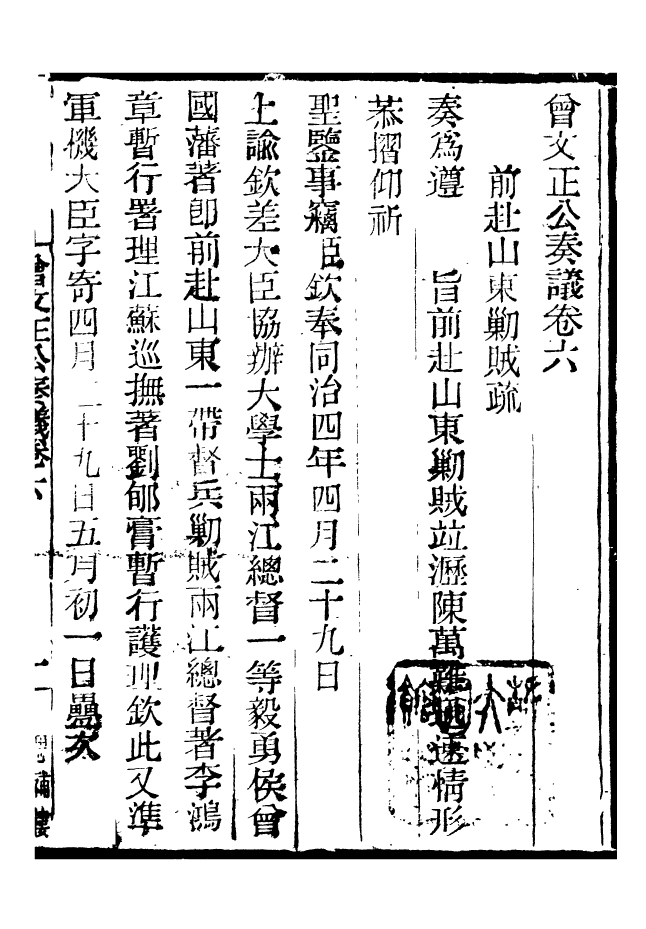 曾文正公奏議卷六
前赴山東勦賊疏
奏爲遵 旨前赴山東勦賊竝瀝陳萬難迅速情形
恭摺仰祈
聖鑒事竊臣欽奉同治四年四月二十九日
上諭欽差大臣協辦大學士兩江總督一等毅勇侯曾
國藩著卽前赴山東一帶督兵勦賊兩江總督著李鴻
章暫行署理江蘇巡撫著劉郇膏暫行護理欽此又準
軍機大臣字寄四月二十九日五月初一日疊次
曾文正公奏議卷六 一